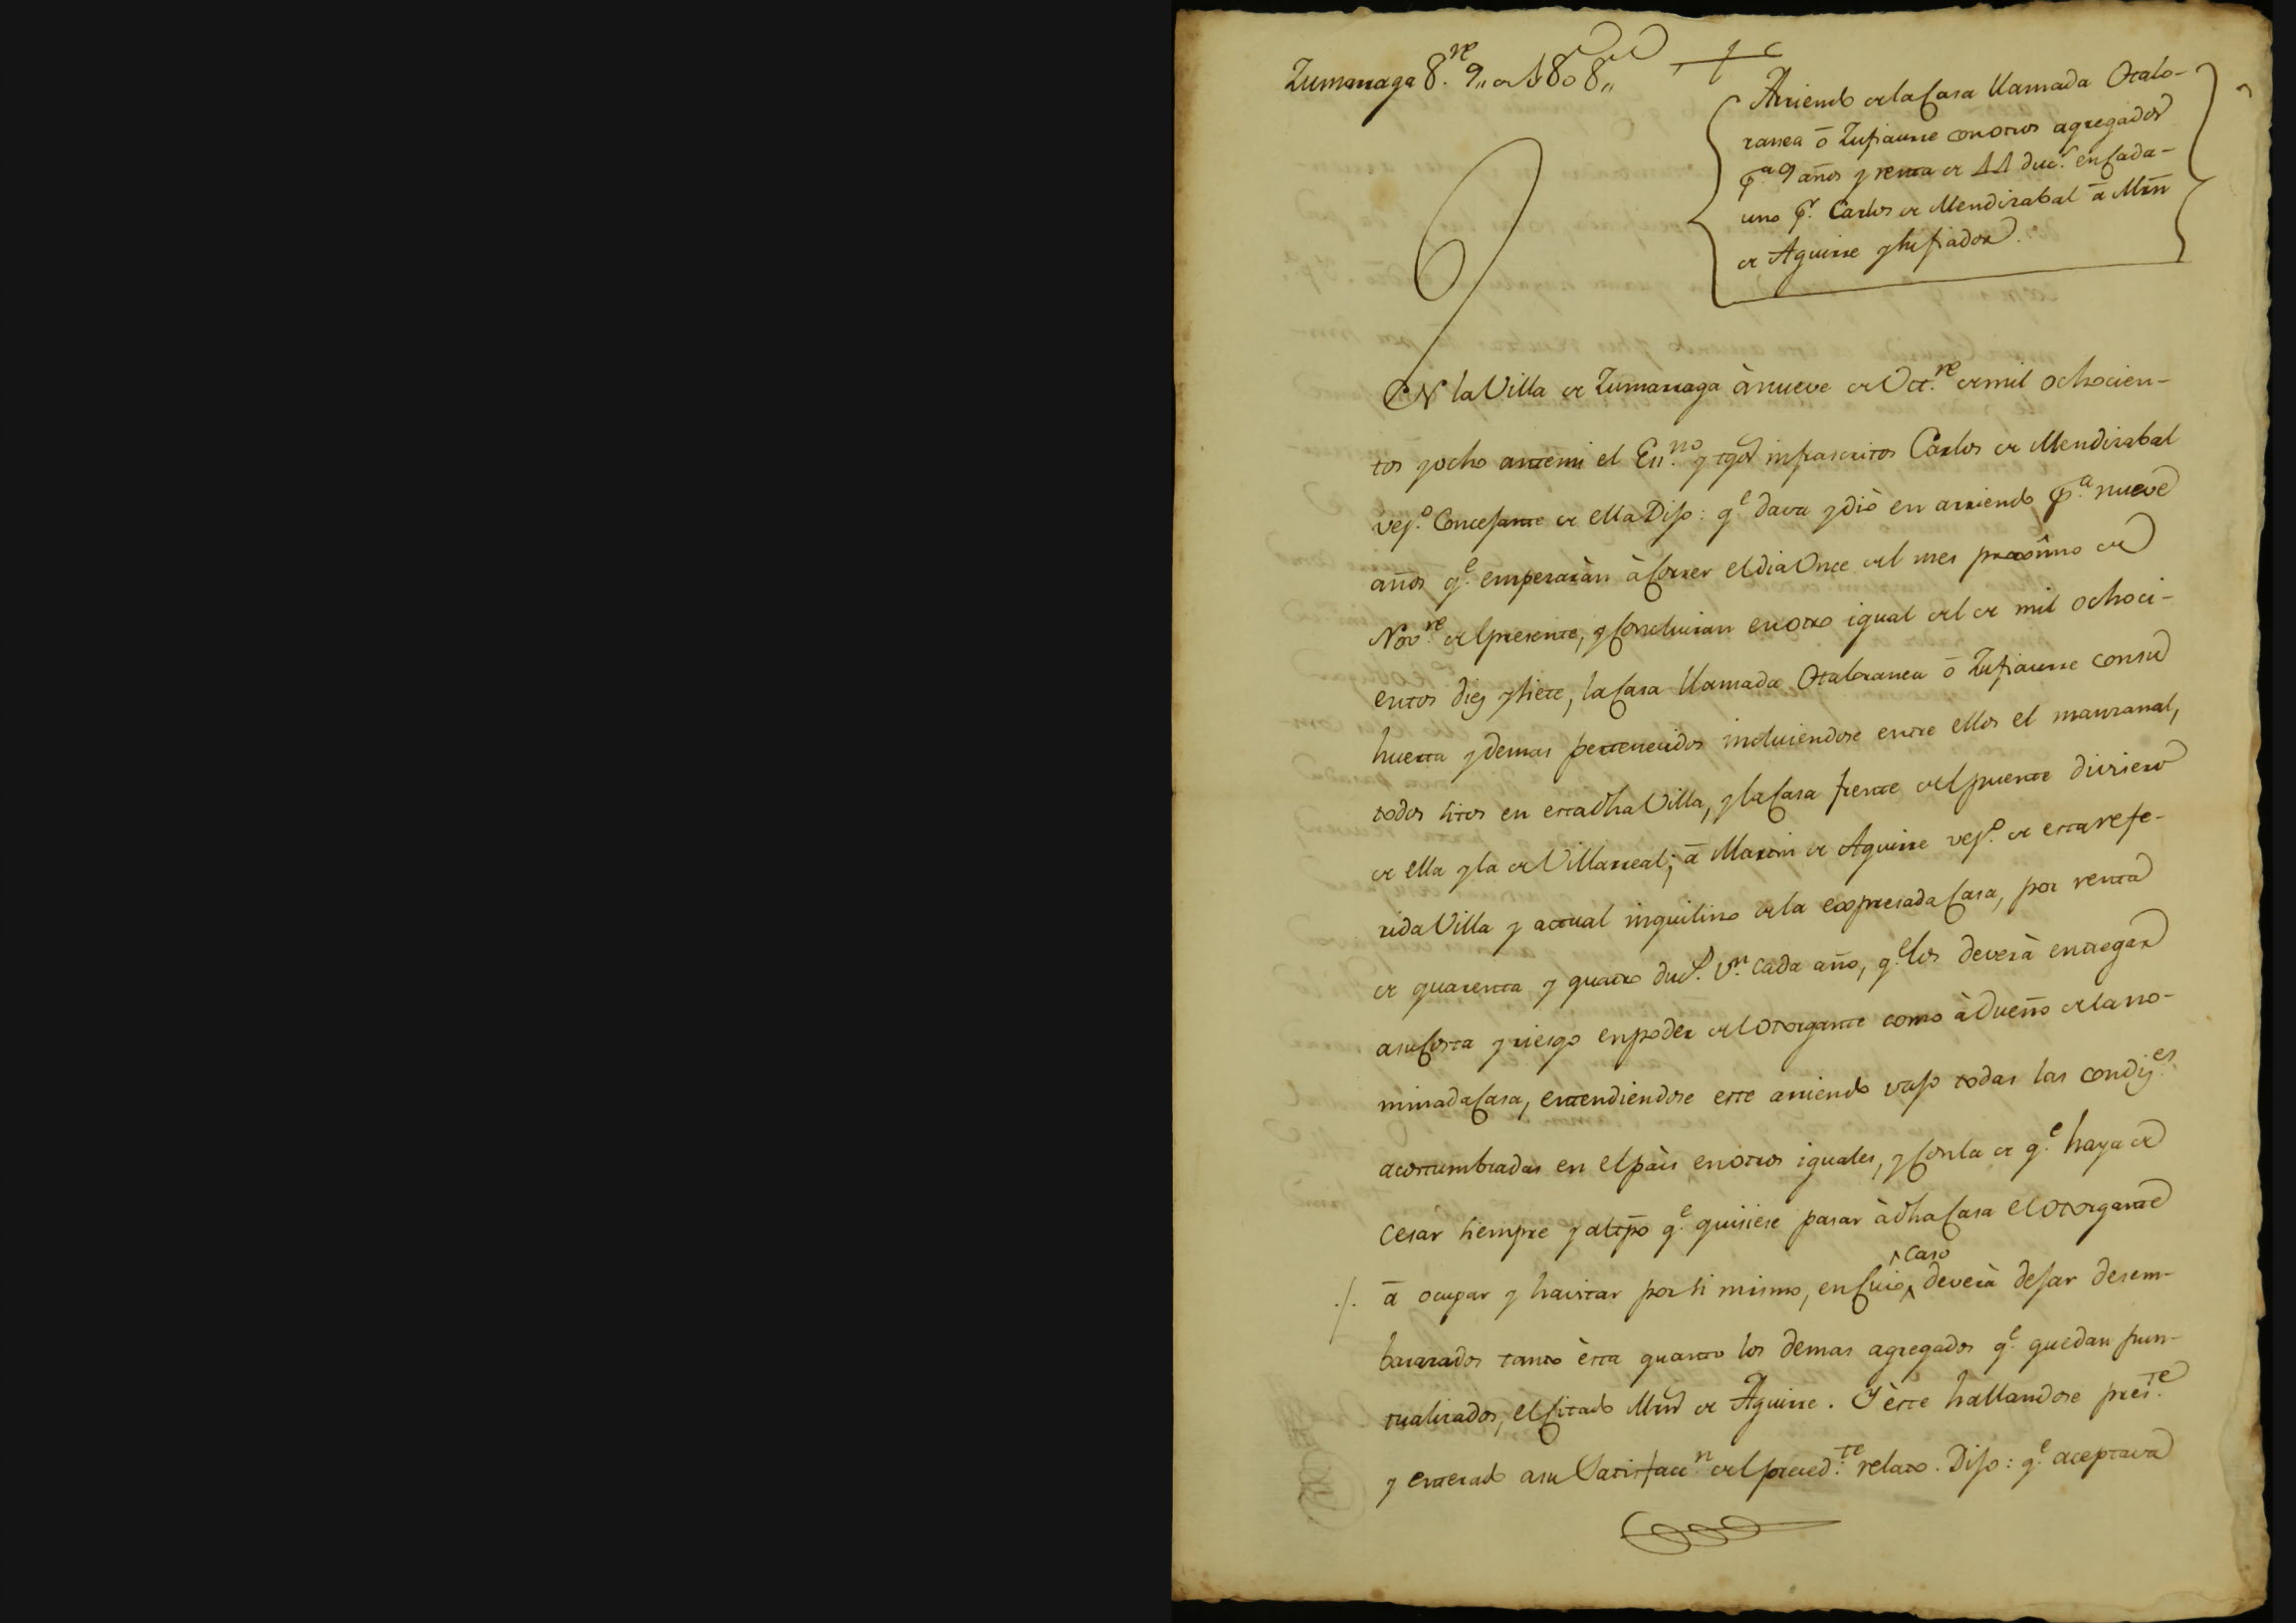 Zumarraga 8.re 9,, de 1808,,
Arriendo de la Casa llamada Otalo-
ranea ō Zufiaurre con otros agregados
p.a 9 años y renta de 44 duc.s en Cada-
uno p.r Carlos de Mendizabal ā Mrn̄
de Aguirre y su fiador.
EN la Villa de Zumarraga à nueve de Oct.re de mil ochocien-
tos y ocho ante mi el Esn.no y tgos infrascritos Carlos de Mendizabal
vej.o Concejante de ella Dijo: q.e dava y diò en arriendo p.a nueve
años q.e empezaràn à Correr el dia Once del mes proxîmo de
Nov.re del presente, y Concluiran en otro igual del de mil ochoci-
entos diez y siete, la Casa llamada Otaloranea ō Zufiaurre con su
huerta y demas pertenecidos incluiendose entre ellos el manzanal,
todos sitos en esta dha Villa, y la Casa frente del puente divisero
de ella y la de Villarreal; ā Martin de Aguirre vej.o de esta refe-
rida Villa y actual inquilino de la expresada Casa, por renta
de quarenta y quatro duc.s v.n cada año, q.e los deverà entregar
a su Costa y riesgo en poder del Otorgante como à Dueño de la no-
minada Casa, entendiendose este arriendo vajo todas las condiz.es
acostumbradas en el paìs en otros iguales, y Con la de q.e haya de
cesar siempre y al tp̄o q.e quisiese pasar à dha Casa el Otorgante
./. ā ocupar y havitar por si mismo, en Cuio caso deverà dejar desem-
barazados tanto èsta quanto los demas agregados q.e quedan pun-
tualizados, el Citado Mrn de Aguirre. Y èste hallandose pres.te
y enterado a su Satisfacc.n del preced.te relato. Dijo: q.e aceptava